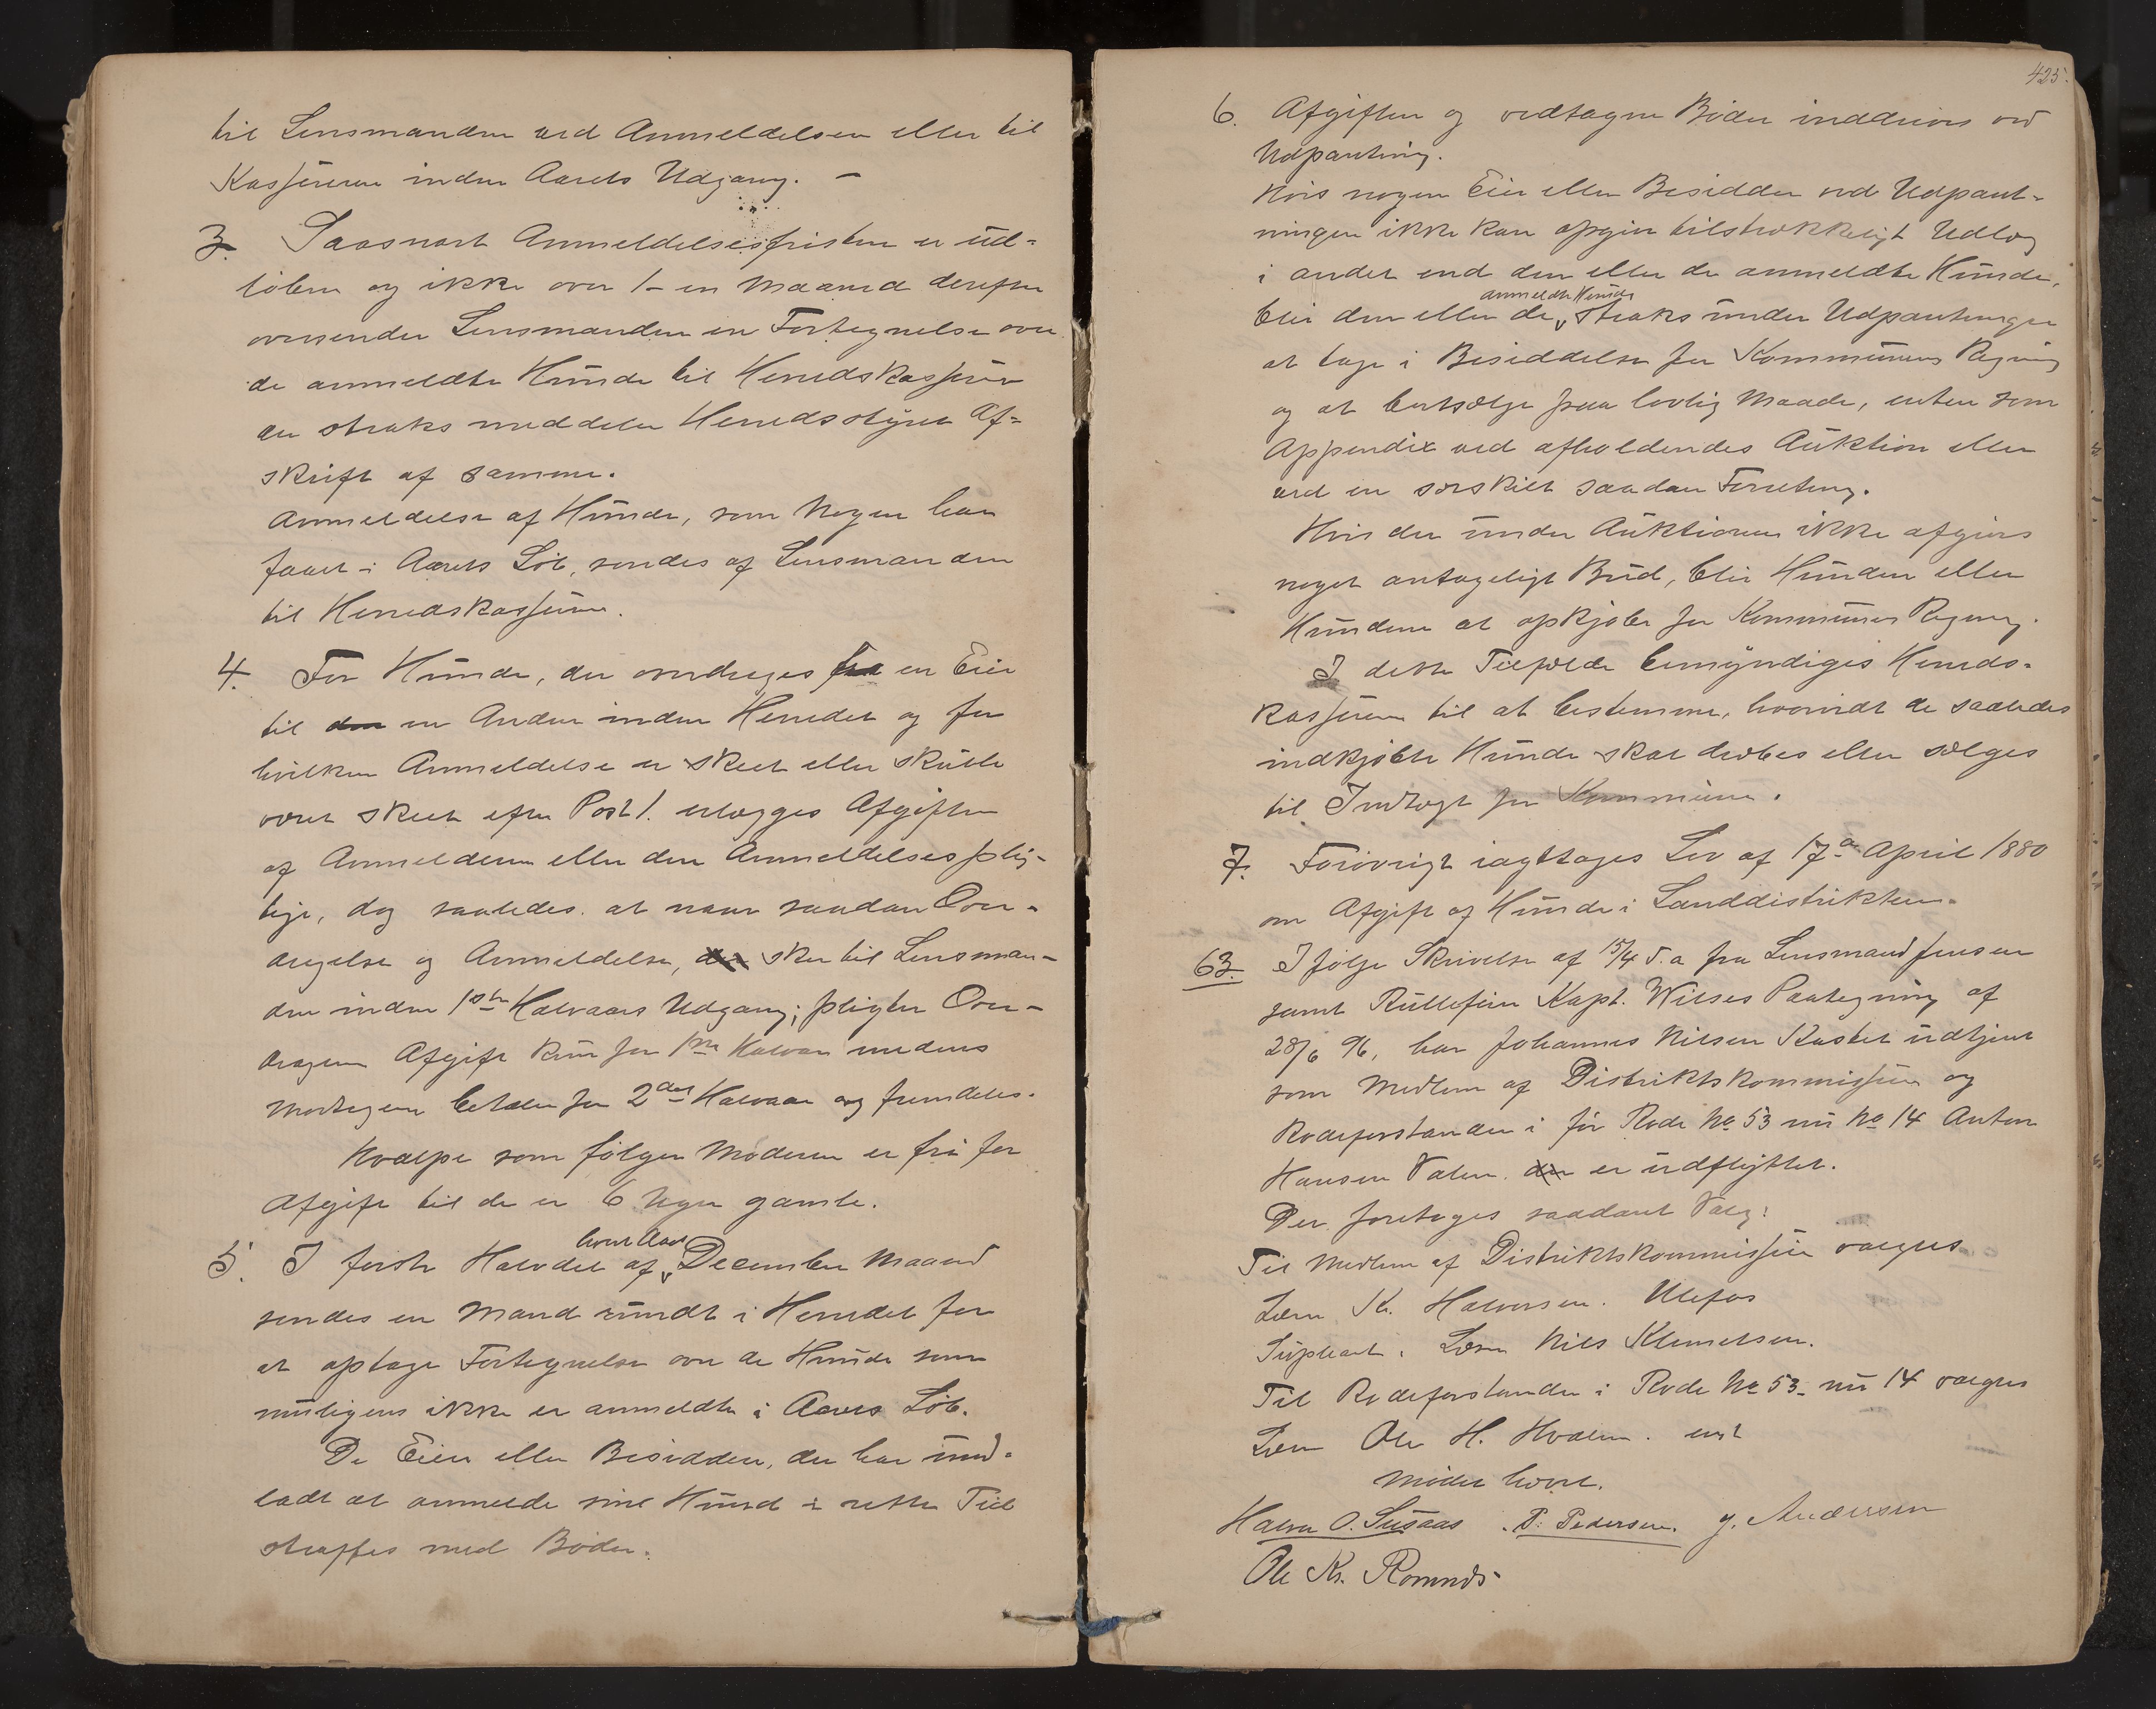 til Lensmanden ved Anmeldelsen eller til
Kassereren inden Aarets Udgang. –
3. Saasnart Anmeldelsesfristen er ud-
løben og ikke over 1 – en Maaned derefter
oversender Lensmanden en Fortegnelse over
de anmeldte Hunde til Herredskasserer
der straks meddeler Herredsstyret Af-
skrift af samme.
Anmeldelse af Hunde, som Nogen har
faaet i Aarets Løb, sendes af Lensmanden
til Herredskasseren.
4. For Hunde, der overdrages fra en Eier
til den en Anden inden Herredet og for
hvilken Anmeldelse er skeet eller skulle
været skeet efter Post 1. erlægges Afgiften
af Anmelderen eller den Anmeldelsesplig-
tige, dog saaledes at naar saadan Over-
dragelse og Anmeldelse, der sker til Lensman-
den inden 1ste Halvaars Udgang; pligter Over-
drageren Afgift kun for 1ste Halvaar medens
Modtageren betaler for 2det Halvaar og fremdeles.
Hvalpe som følger Moderen er fri for
Afgift til de er 6 Uger gamle.
hvert Aar
5. I første Halvdel af December Maaned
sendes en Mand rundt i Herredet for
at optage Fortegnelse over de Hunde som
muligens ikke er anmeldte i Aarets Løb.
De Eiere eller Besiddere, der har und-
ladt at anmelde sine Hund i rette Tid
straffes med Bøder.
425.
6. Afgiften og vedtagne Bøder inddrives ved
Udpantning.
Hvis nogen Eier eller Besidder ved Udpant-
ningen ikke kan opgive tilstrækkeligt Udlæg
i andet end den eller de anmeldte Hunde,
anmeldte Hunde
blir den eller de straks under Udpantningen
at tage i Besiddelse for Kommunens Regning
og at bortsælge paa lovlig Maade, enten som
Appendix ved afholdendes Auktion eller
ved en særskilt saadan Forretning.
Hvis der under Auktionen ikke afgives
noget antageligt Bud, blir Hunden eller
Hundene at opkjøbe for Kommunens Regning.
I dette Tilfælde bemyndiges Herreds-
kasseren til at bestemme, hvorvidt de saaledes
indkjøbte Hunde skal dræbes eller sælges
til Indtægt for Kommunen.
7. Forøvrigt iagttages Lov af 17de April 1880
om Afgift af Hunde i Landdistrikterne.
63. Ifølge Skrivelse af 15/4 d.a fra Lensmand Jensen
samt Rullefører Kapt. Wilses Paategning af
28/6 96, har Johannes Nilsen Kastet udtjent
som Medlem af Distriktskommissionen og
Rodeforstanderen i før Rode No 53 nu No 14 Anton
Hansen Valen. der er udflyttet.
Der foretages saadant Valg:
Til Medlem af Distriktskommission valgtes
Lærer K. Halvorsen. Ulefos
Supleant: Lærer Nils Klemetsen.
Til Rodeforstander i Rode No 53 – nu 14 valgtes
Lærer Ole H. Hvalen. enst
Mødet hævet.
Halvor O. Tufaas . P. Pedersen. J. Andersen
Ole Kr. Romnæs